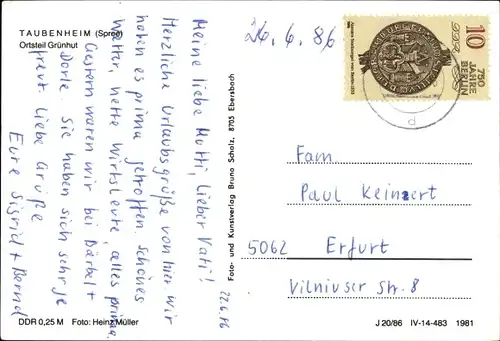 TAUBENHEIM (Spree)
Ortsteil Grünhut
22.6.86
Meine liebe Mutti, lieber Vati!
Herzliche Urlaubsgrüße von hier wir
haben es prima getroffen. schönes
Wetter, nette Wirtsleute, alles prima.
Gestern waren wir bei Bärbel +
Dorle. Sie haben sich sehr
freut. Liebe Grüße
Eure Sigrid + Bernd
DDR 0,25 M Foto: Heinz Müller
Foto- und Kunstverlag Bruno Scholz, 8705 Ebersbach
26.6.86
10
750
JAHRE
BERLIN
DDR
d
Fam.
Paul Keinzert
5062 Erfurt
Vilniuser Str. 8
J 20/86 IV-14-483 1981